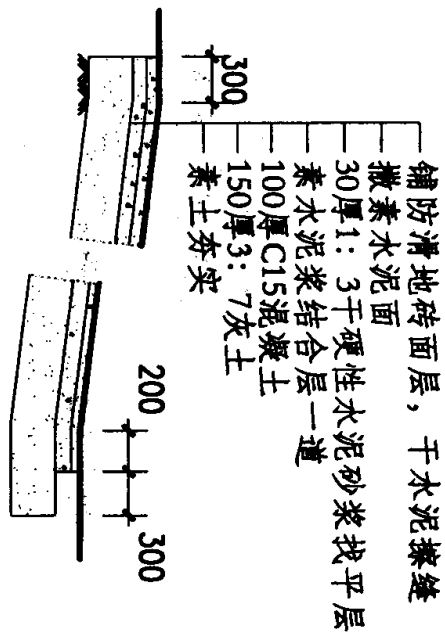 铺防滑地砖面层，干水泥擦缝
撒素水泥面
30厚1：3干硬性水泥砂浆找平层
素水泥浆结合层一道
100厚C15混凝土
150厚3：7灰土
素土夯实
300
200
300